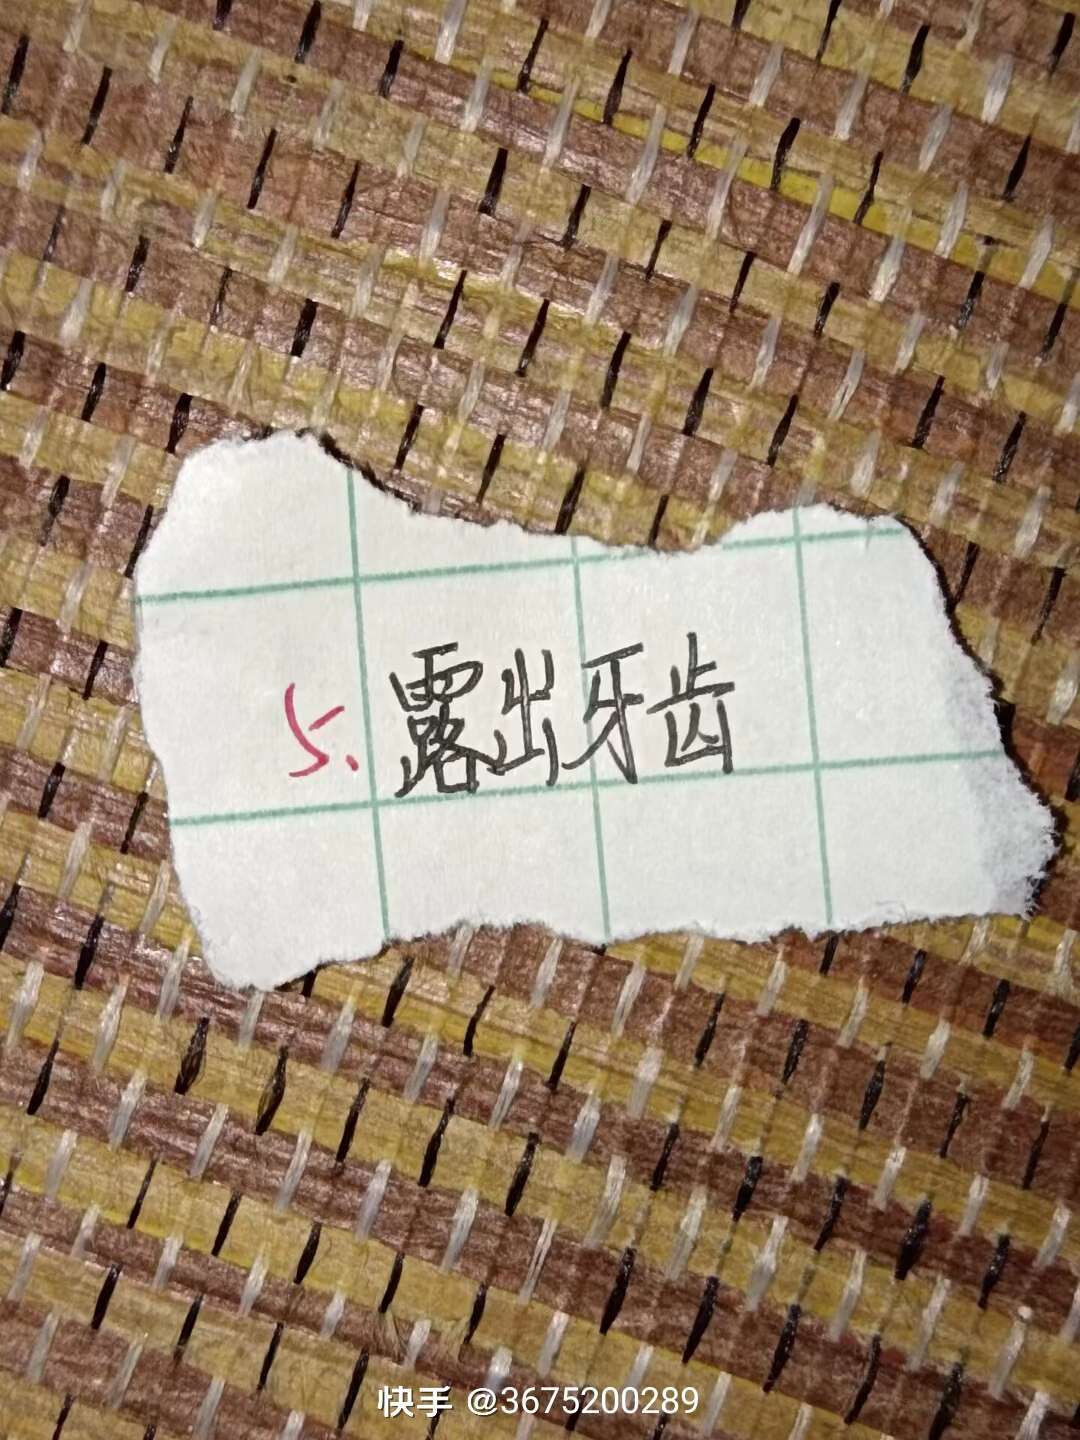 5. 露出牙齿
快手 @3675200289